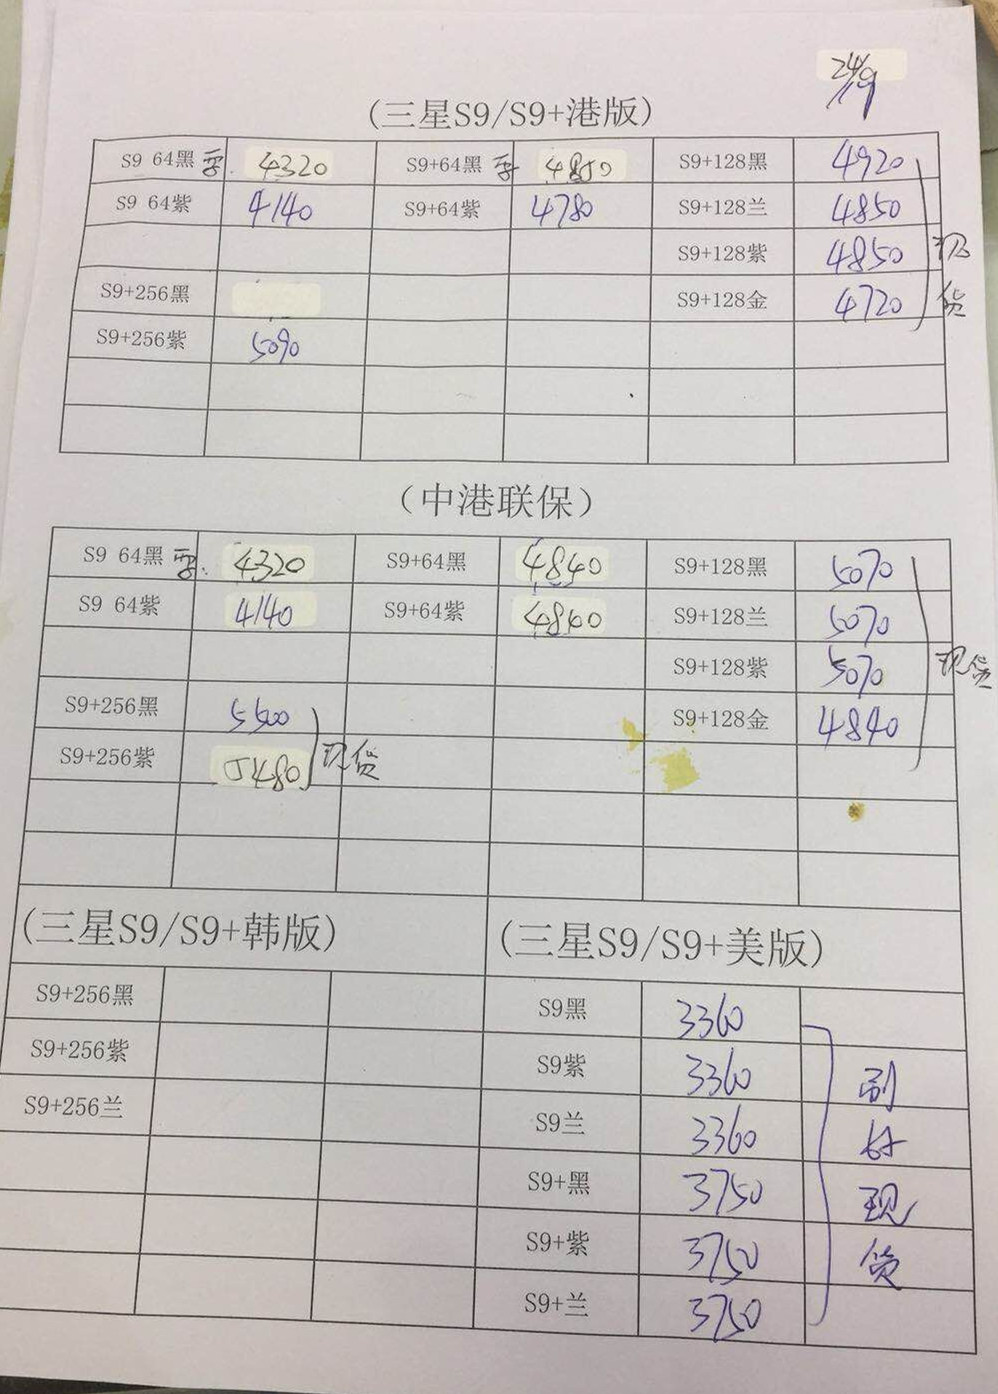 24/9
(三星S9/S9+港版)
S9 64黑 4320 S9+64黑 S9+128黑 4920
S9 64紫 4140 S9+64紫 4780 S9+128兰 4850
S9+128紫 4850 现
S9+256黑 S9+128金 4720 货
S9+256紫 5090
(中港联保)
S9 64黑 4320 S9+64黑 4840 S9+128黑 5070
S9 64紫 4140 S9+64紫 4840 S9+128兰 5070
S9+128紫 5070 现货
S9+256黑 5500 S9+128金 4840
S9+256紫 5480 现货
(三星S9/S9+韩版) (三星S9/S9+美版)
S9+256黑 S9黑 3360
S9+256紫 S9紫 3360 刷
S9+256兰 S9兰 3360 好
S9+黑 3750 现
S9+紫 3750 货
S9+兰 3750